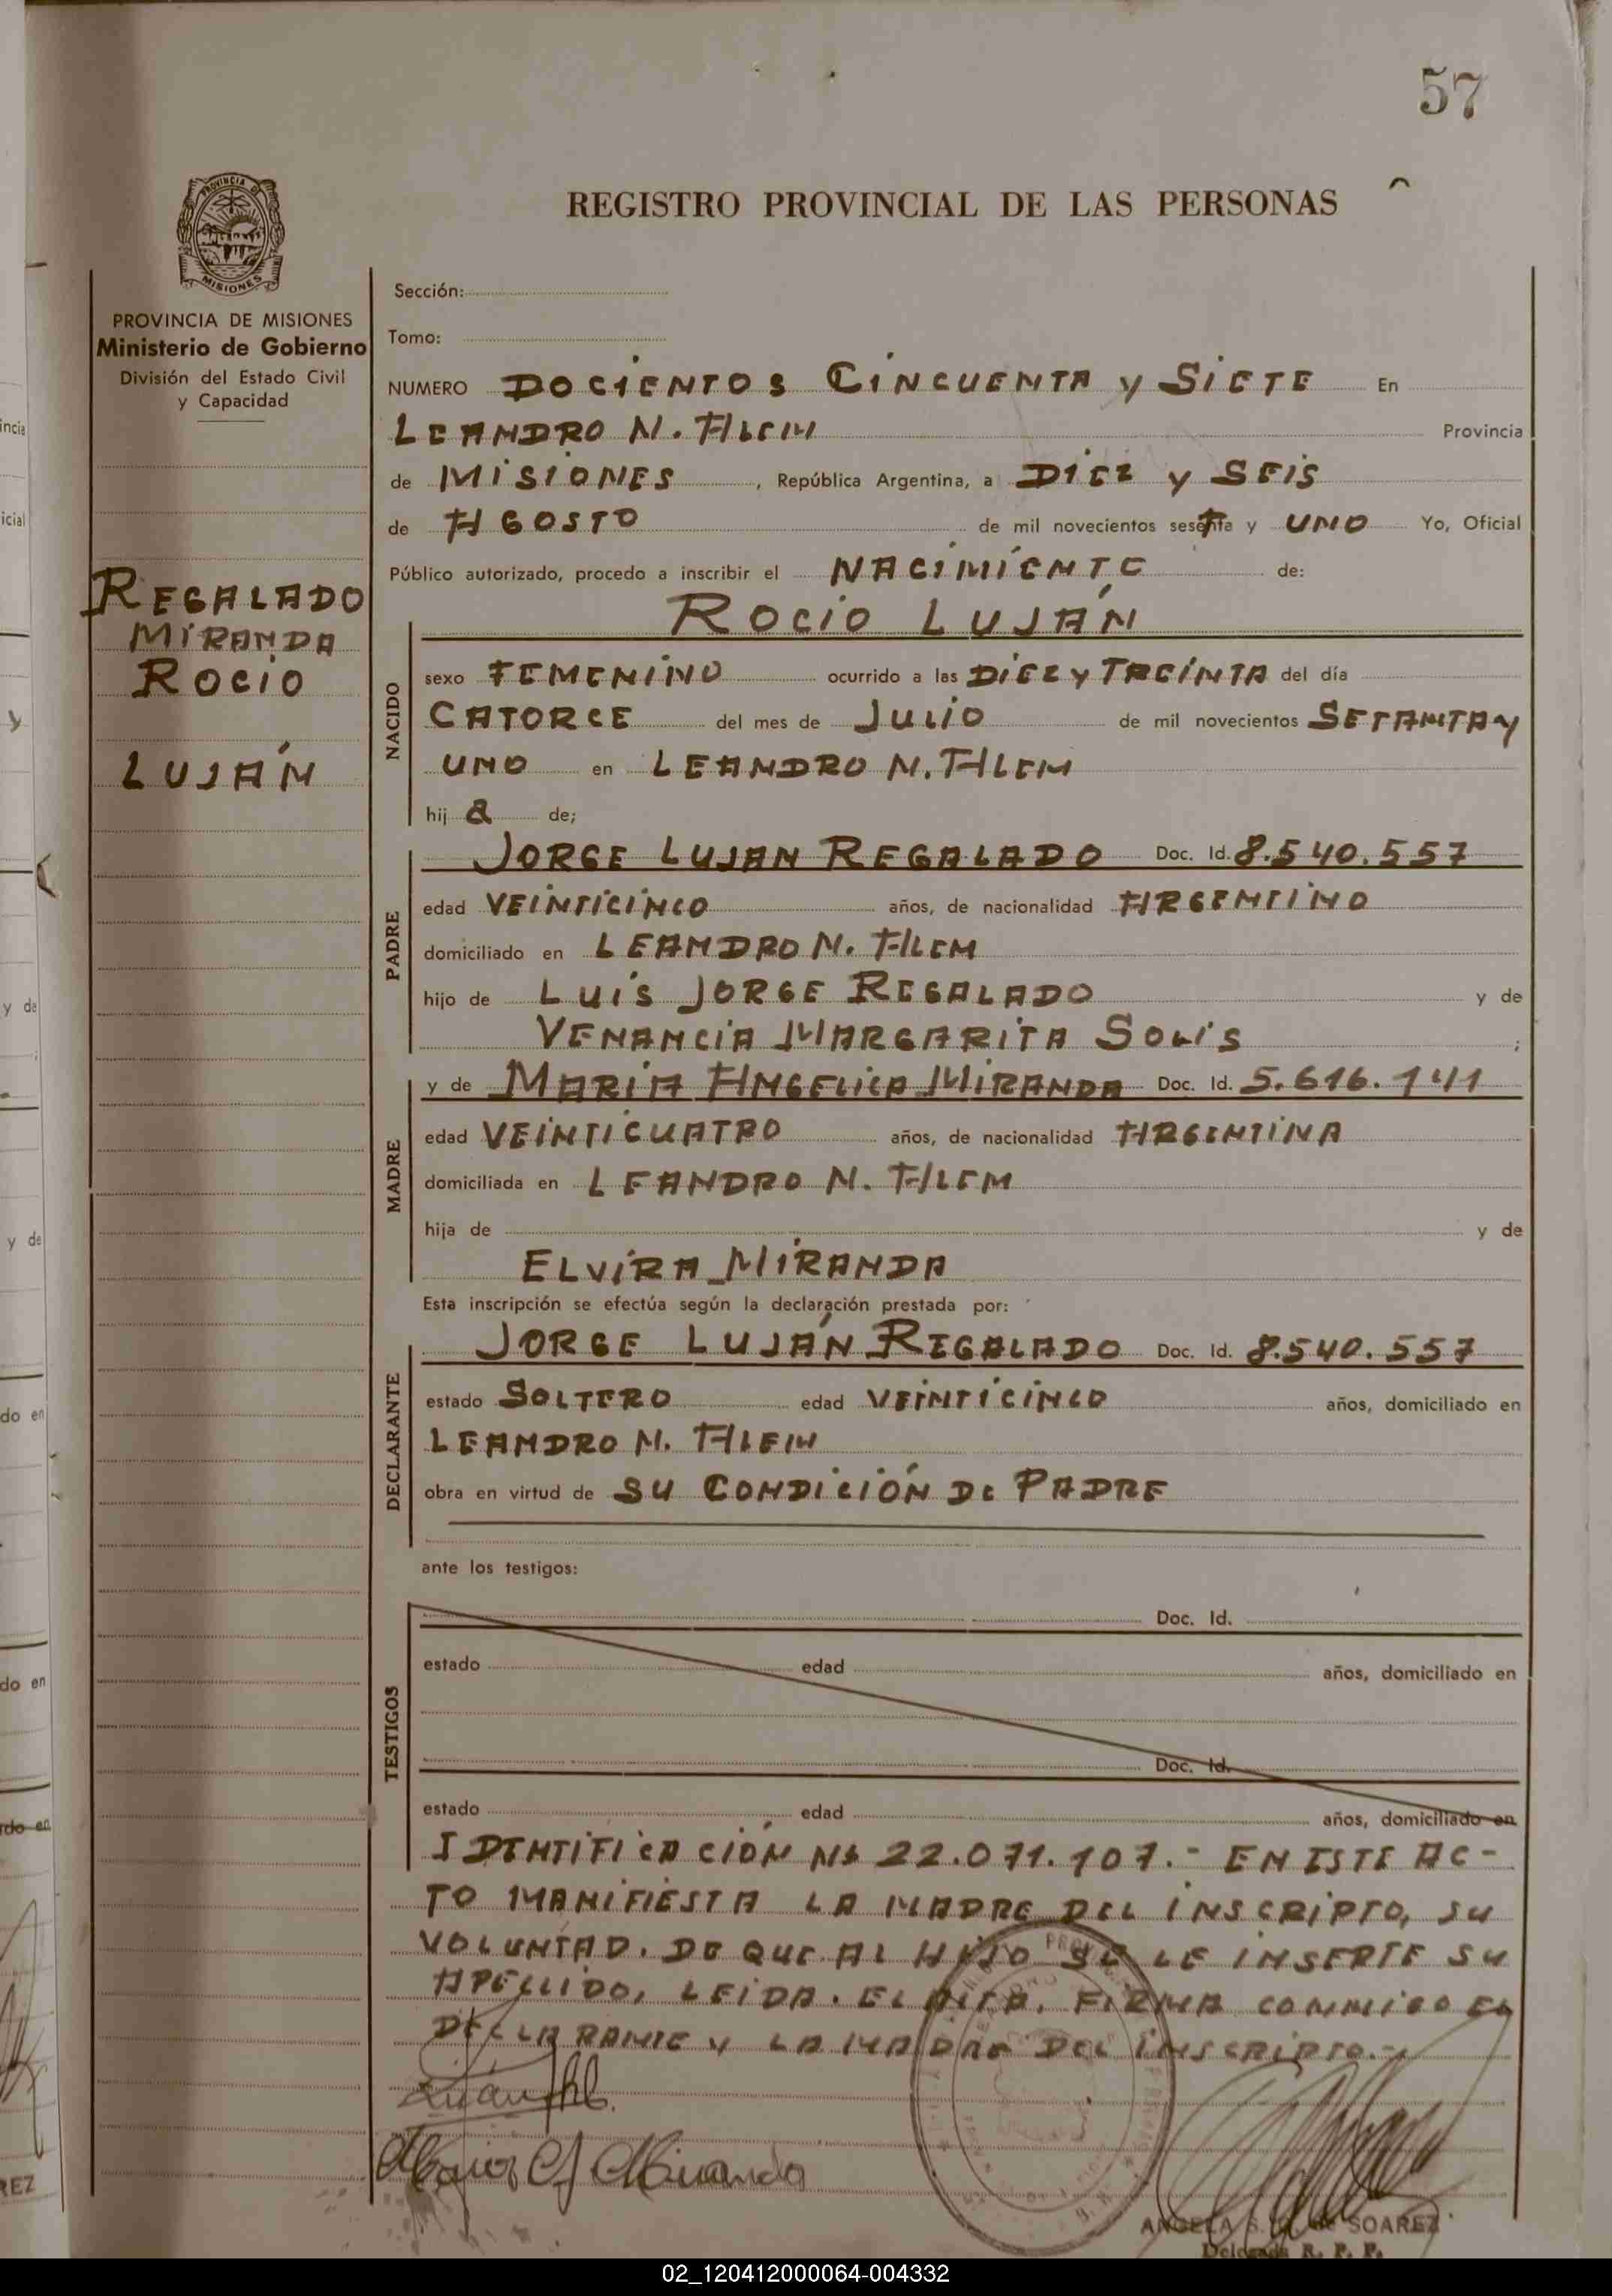 57
REGISTRO PROVINCIAL DE LAS PERSONAS
PROVINCIA DE MISIONES
PROVINCIA DE MISIONES
Ministerio de Gobierno
División del Estado Civil
y Capacidad
REGALADO
MIRANDA
ROCIO
LUJÁN
Sección:
Tomo:
NUMERO DOCIENTOS CINCUENTA y SIETE En
LEANDRO N. ALEM Provincia
de MISIONES, República Argentina, a DIEZ y SEIS
de AGOSTO de mil novecientos sesenta y UNO Yo, Oficial
Público autorizado, procedo a inscribir el NACIMIENTO de:
ROCIO LUJÁN
NACIDO
sexo FEMENINO ocurrido a las DIEZ y TREINTA del día
CATORCE del mes de JULIO de mil novecientos SETANTA y
UNO en LEANDRO N. ALEM
hij a de;
PADRE
JORGE LUJAN REGALADO Doc. Id. 8.540.557
edad VEINTICINCO años, de nacionalidad ARGENTINO
domiciliado en LEANDRO N. ALEM
hijo de LUIS JORGE REGALADO y de
VENANCIA MARGARITA SOLIS ;
MADRE
y de MARIA ANGELICA MIRANDA Doc. Id. 5.616.141
edad VEINTICUATRO años, de nacionalidad ARGENTINA
domiciliada en LEANDRO N. ALEM
hija de y de
ELVIRA MIRANDA
Esta inscripción se efectúa según la declaración prestada por:
DECLARANTE
JORGE LUJÁN REGALADO Doc. Id. 8.540.557
estado SOLTERO edad VEINTICINCO años, domiciliado en
LEANDRO N. ALEM
obra en virtud de SU CONDICIÓN DE PADRE
ante los testigos:
TESTIGOS
Doc. Id.
estado edad años, domiciliado en
Doc. Id.
estado edad años, domiciliado en
IDENTIFICACIÓN Nº 22.071.107.- EN ESTE AC-
TO MANIFIESTA LA MADRE DEL INSCRIPTO, SU
VOLUNTAD. DE QUE AL HIJO SE LE INSERTE SU
APELLIDO, LEIDA. EL ACTA, FIRMA CONMIGO EL
DECLARANTE y LA MADRE DEL INSCRIPTO.-
Maria A Miranda
ANGELA S. de SOAREZ
Delegada R. P. P.
02_120412000064-004332